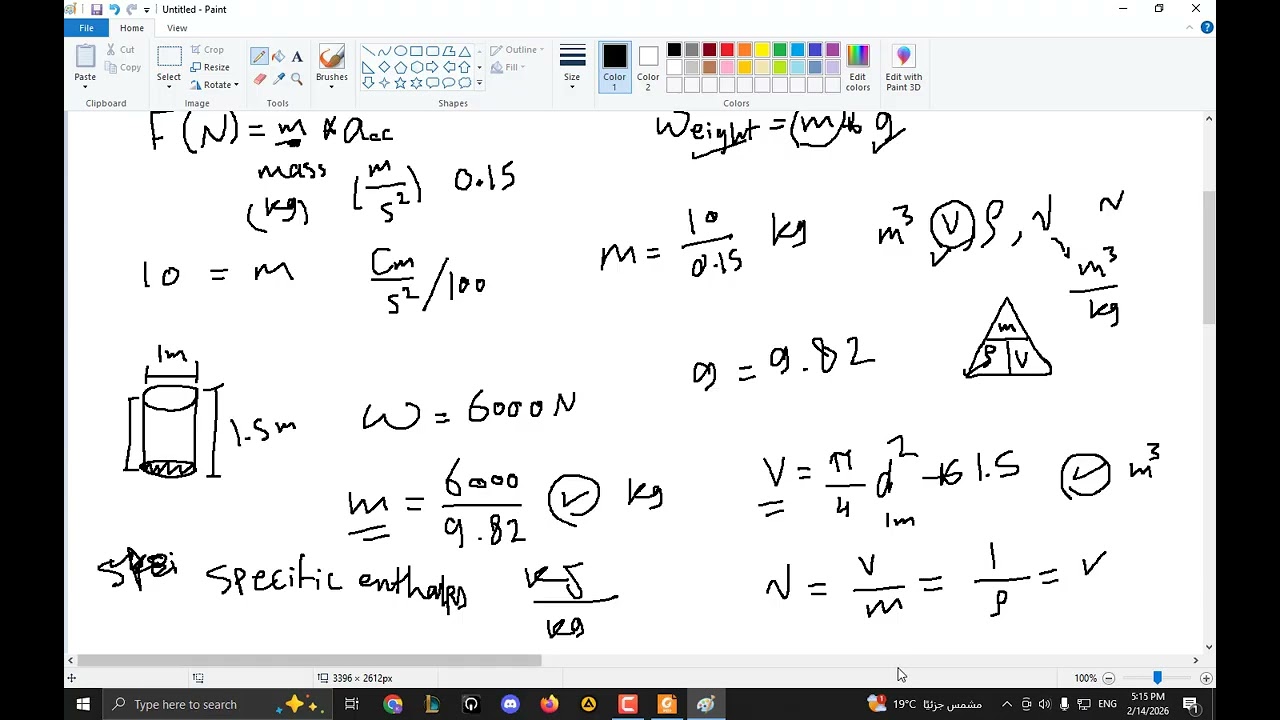 Untitled - Paint
File Home View
Paste Cut Copy Clipboard
Select Crop Resize Rotate Image
Tools
Brushes
Outline Fill Shapes
Size
Color 1 Color 2 Edit colors Edit with Paint 3D
Colors
F(N) = m * acc
mass (m/s²) 0.15
(kg)
Weight = (m) * g
10 = m cm/s² /100
m = 10/0.15 kg
m³ V ρ, v
m³/kg
m
ρ V
g = 9.82
1m
1.5m
W = 6000N
m = 6000/9.82 ✓ kg
V = π/4 d² * 1.5 ✓ m³
1m
specific enthalpy kJ/kg
v = V/m = 1/ρ = ✓
3396 × 2612px
100%
Type here to search
19°C مشمس جزئيًا
ENG
5:15 PM
2/14/2026